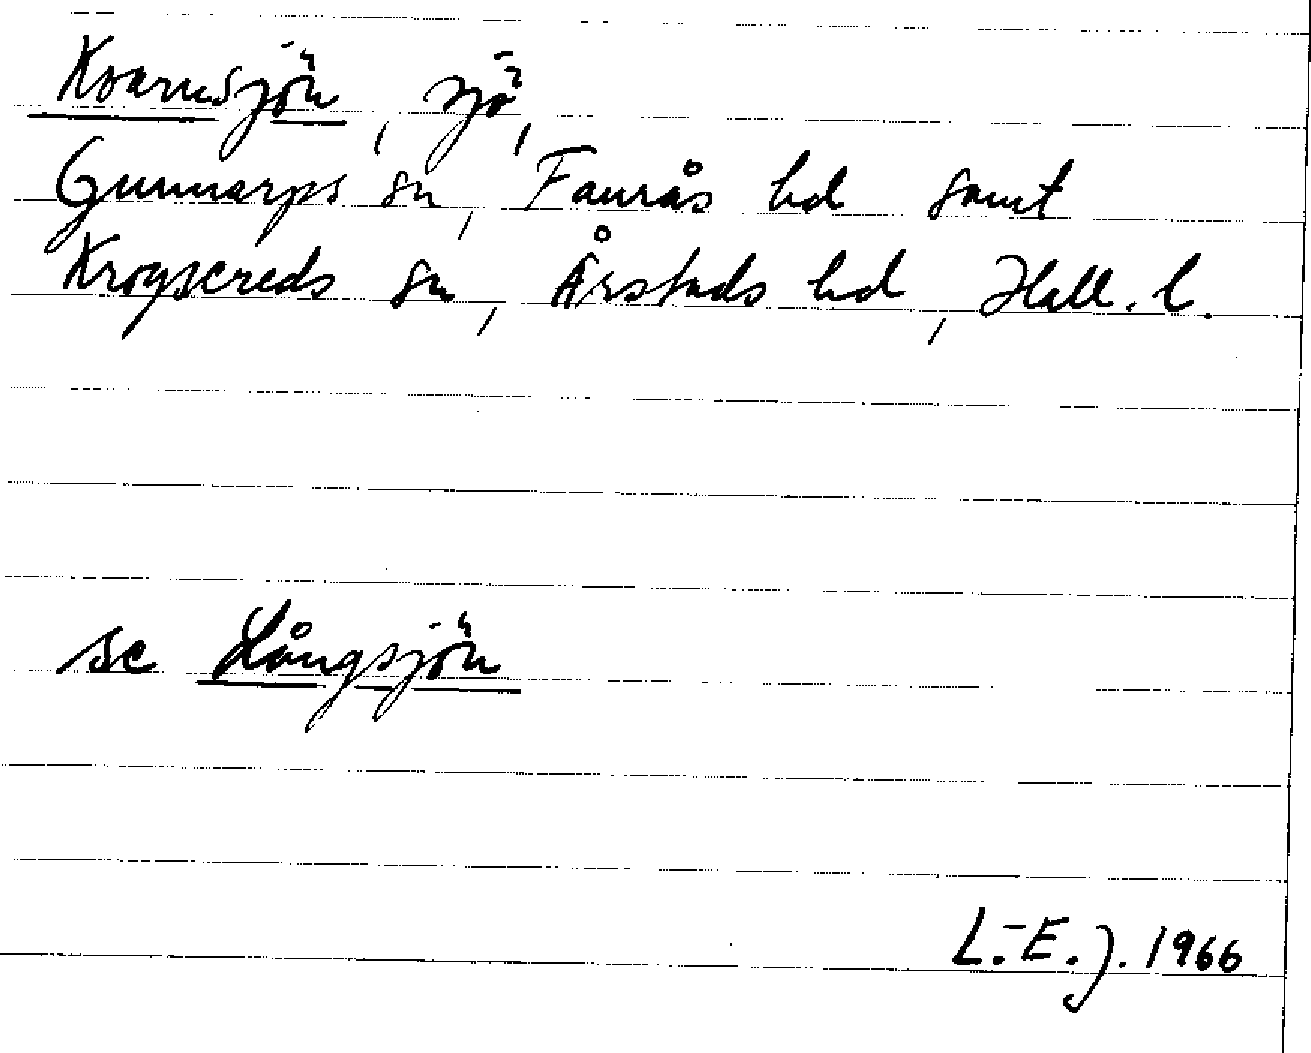 Kvarnsjön, sjö,
Gunnarps sn, Faurås hd samt
Krogsereds sn, Årstads hd, Hall. l.
se Långsjön
L.-E. J. 1966